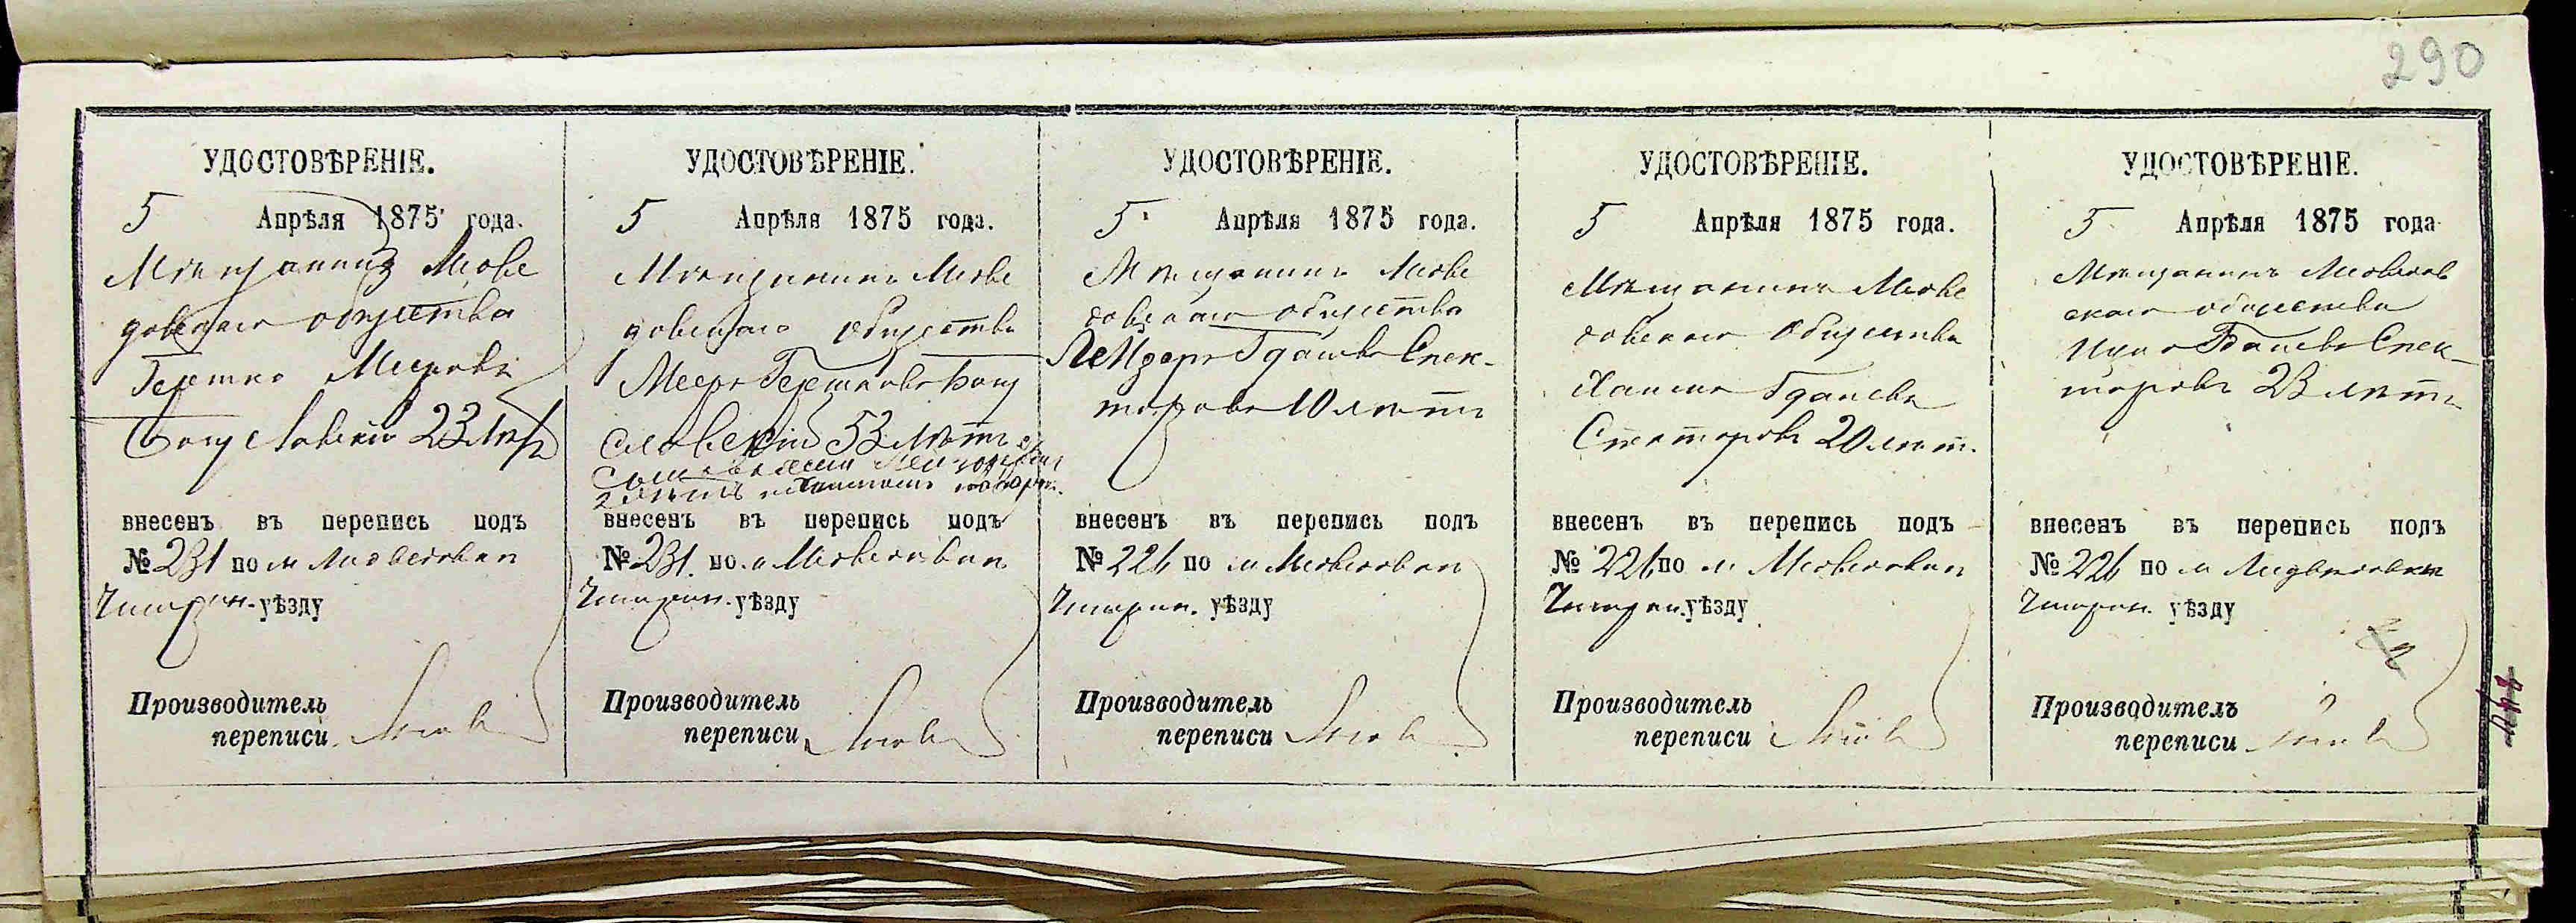 290
УДОСТОВѢРЕНІЕ.
5 Апрѣля 1875 года.
Мѣщанинъ Медве
довскаго общества
Гершко Мееровъ
Богуславскій 23 лѣтъ
внесенъ въ перепись подъ
№ 231 по м Медведовкѣ
Чигирин. уѣзду
Производитель
переписи
УДОСТОВѢРЕНІЕ.
5 Апрѣля 1875 года.
Мѣщанинъ Медве
довскаго общества
Мееръ Гершковъ Богу
славскій 53 лѣтъ
внесенъ въ перепись подъ
№ 231 по м Медведовкѣ
Чигирин. уѣзду
Производитель
переписи
УДОСТОВѢРЕНІЕ.
5 Апрѣля 1875 года.
Мѣщанинъ Медве
довскаго общества
Лейзеръ Гдалевъ Спек-
торовъ 10 лѣтъ
внесенъ въ перепись подъ
№ 226 по м Медведовкѣ
Чигирин. уѣзду
Производитель
переписи
УДОСТОВѢРЕНІЕ.
5 Апрѣля 1875 года.
Мѣщанинъ Медве
довскаго общества
Гдалевъ
Спекторовъ 20 лѣт.
внесенъ въ перепись подъ
№ 226 по м Медведовкѣ
Чигирин. уѣзду
Производитель
переписи
УДОСТОВѢРЕНІЕ.
5 Апрѣля 1875 года
Мѣщанинъ Медведов
скаго общества
Спек-
торовъ 23 лѣтъ
внесенъ въ перепись подъ
№ 226 по м Медведовкѣ
Чигирин. уѣзду
Производитель
переписи